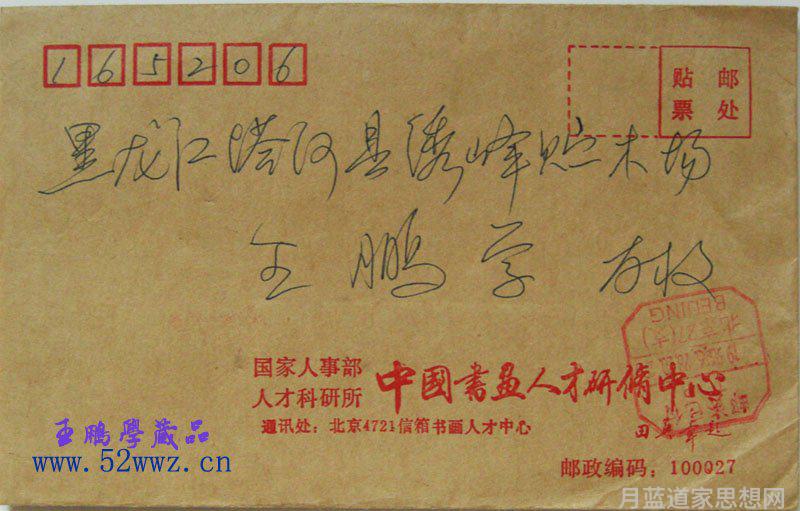 165206
贴 邮
票 处
黑龙江塔河县秀峰贮木场
王鹏学 友收
BEIJING
国家人事部
人才科研所
中國書画人才研修中心
通讯处：北京4721信箱书画人才中心
王鵬學藏品
www.52wwz.cn
邮政编码：100027
月蓝道家思想网